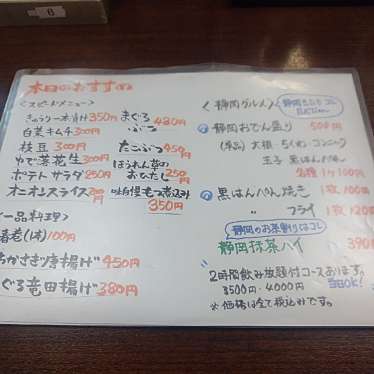 6
本日のおすすめ
<スピードメニュー>
きゅうり一本漬け350円
白菜キムチ300円
枝豆 300円
ゆで落花生300円
ポテトサラダ250円
オニオンスライス300円
まぐろぶつ 480円
たこぶつ 450円
ほうれん草のおひたし 250円
味噌煮込み
350円
一品料理>
春巻(1本)100円
唐揚げ450円
ぐろ竜田揚げ380円
<静岡グルメ>
静岡おでん盛り 500円
(単品) 大根・ちくわ・コンニャク
玉子 黒はんぺん
各種1ケ100円
黒はんぺん焼き 1枚100円
〃 フライ 1枚120
静岡のお茶割りはコレ
静岡抹茶ハイ 390
2時間飲み放題付コースあります。
3500円・4000円 当日OK!
※価格は全て税込みです。